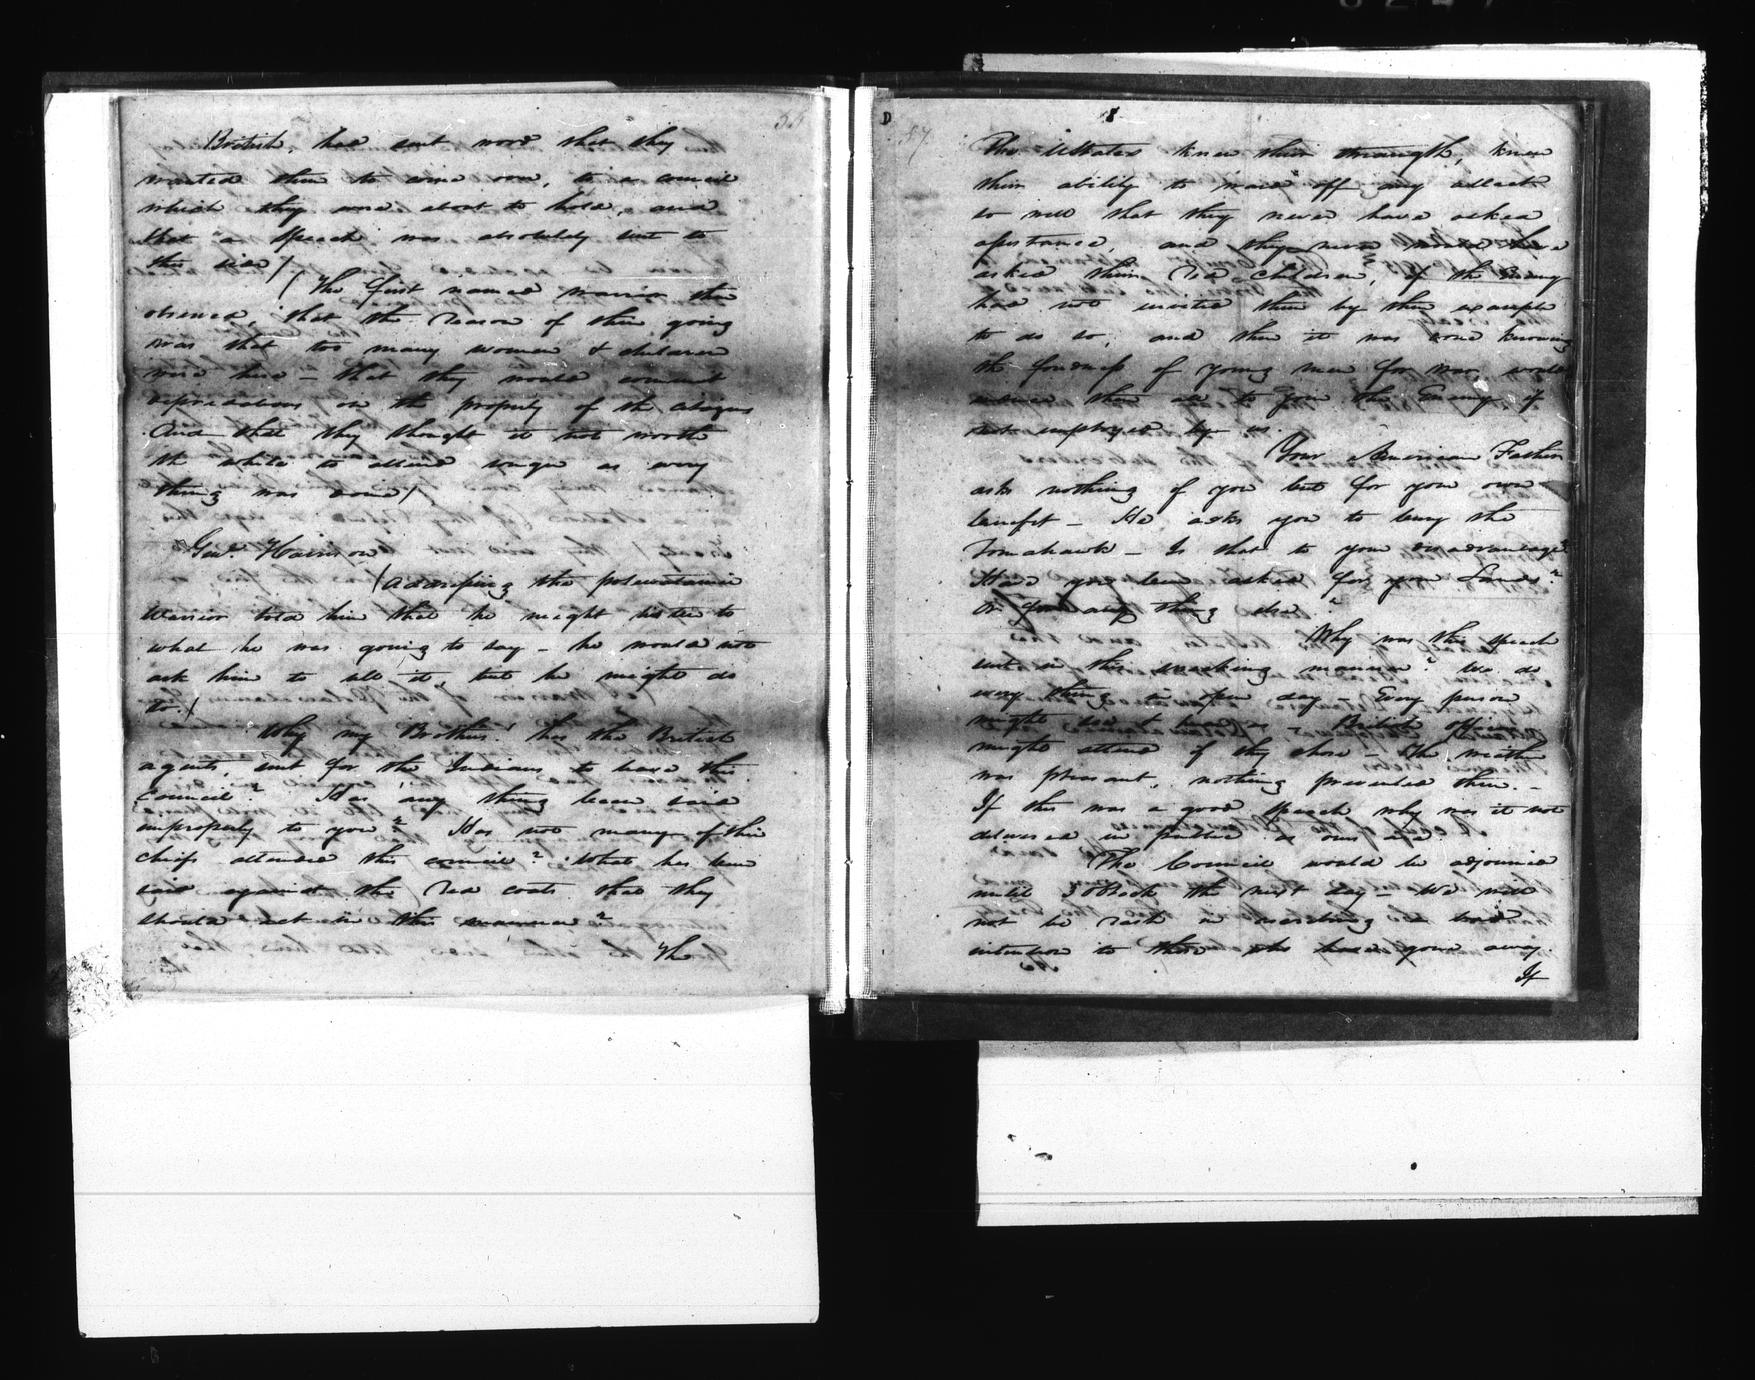 British, had sent word that they
wanted them to come over, to a council
which they were about to hold, and
that a speech was absolutely sent to
this side/
(The first named warrior then
observed, that the reason of their going
was that too many women & children
were here – that they would commit
depredations on the property of the citizens
And that they thought it not worth
the while to attend longer as every
thing was done/
Genl. Harrison
(addressing the potawatamie
warrior told him that he might listen to
what he was going to say – he would not
ask him to tell it, but he might do
so./
Why my Brothers! has the British
agents, sent for the Indians, to leave this
Council? Has any thing been said
improperly to you? Has not many of their
chiefs attended this council? What has been
said against the Red coats that they
should act in this manner?
The
57
8
The UStates knew their strength, knew
their ability to ward off any attack
so well that they never have asked
assistance, and they never would have
asked their Red Children, if the Enemy
had not invited them by their example
to do so, and then it was done knowing
the fondness of young men for war, would
induce them all to join the Enemy if
not employed by us.
Your American Father
asks nothing of you but for your own
benefit – He asks you to bury the
Tomahawk – Is that to your disadvantage?
Have you been asked for your Lands?
Or for any thing else?
Why was this speech
sent in this sneaking manner? We do
every thing in open day – Every person
might see & hear us British officers
might attend if they chose – The weather
was pleasant, nothing prevented them. –
If this was a good speech why was it not
delivered in public as ours are?
(The Council would be adjourned
until 3 oClock the next day – We will
not be rash in ascribing a bad
intention to those who have gone away.
If